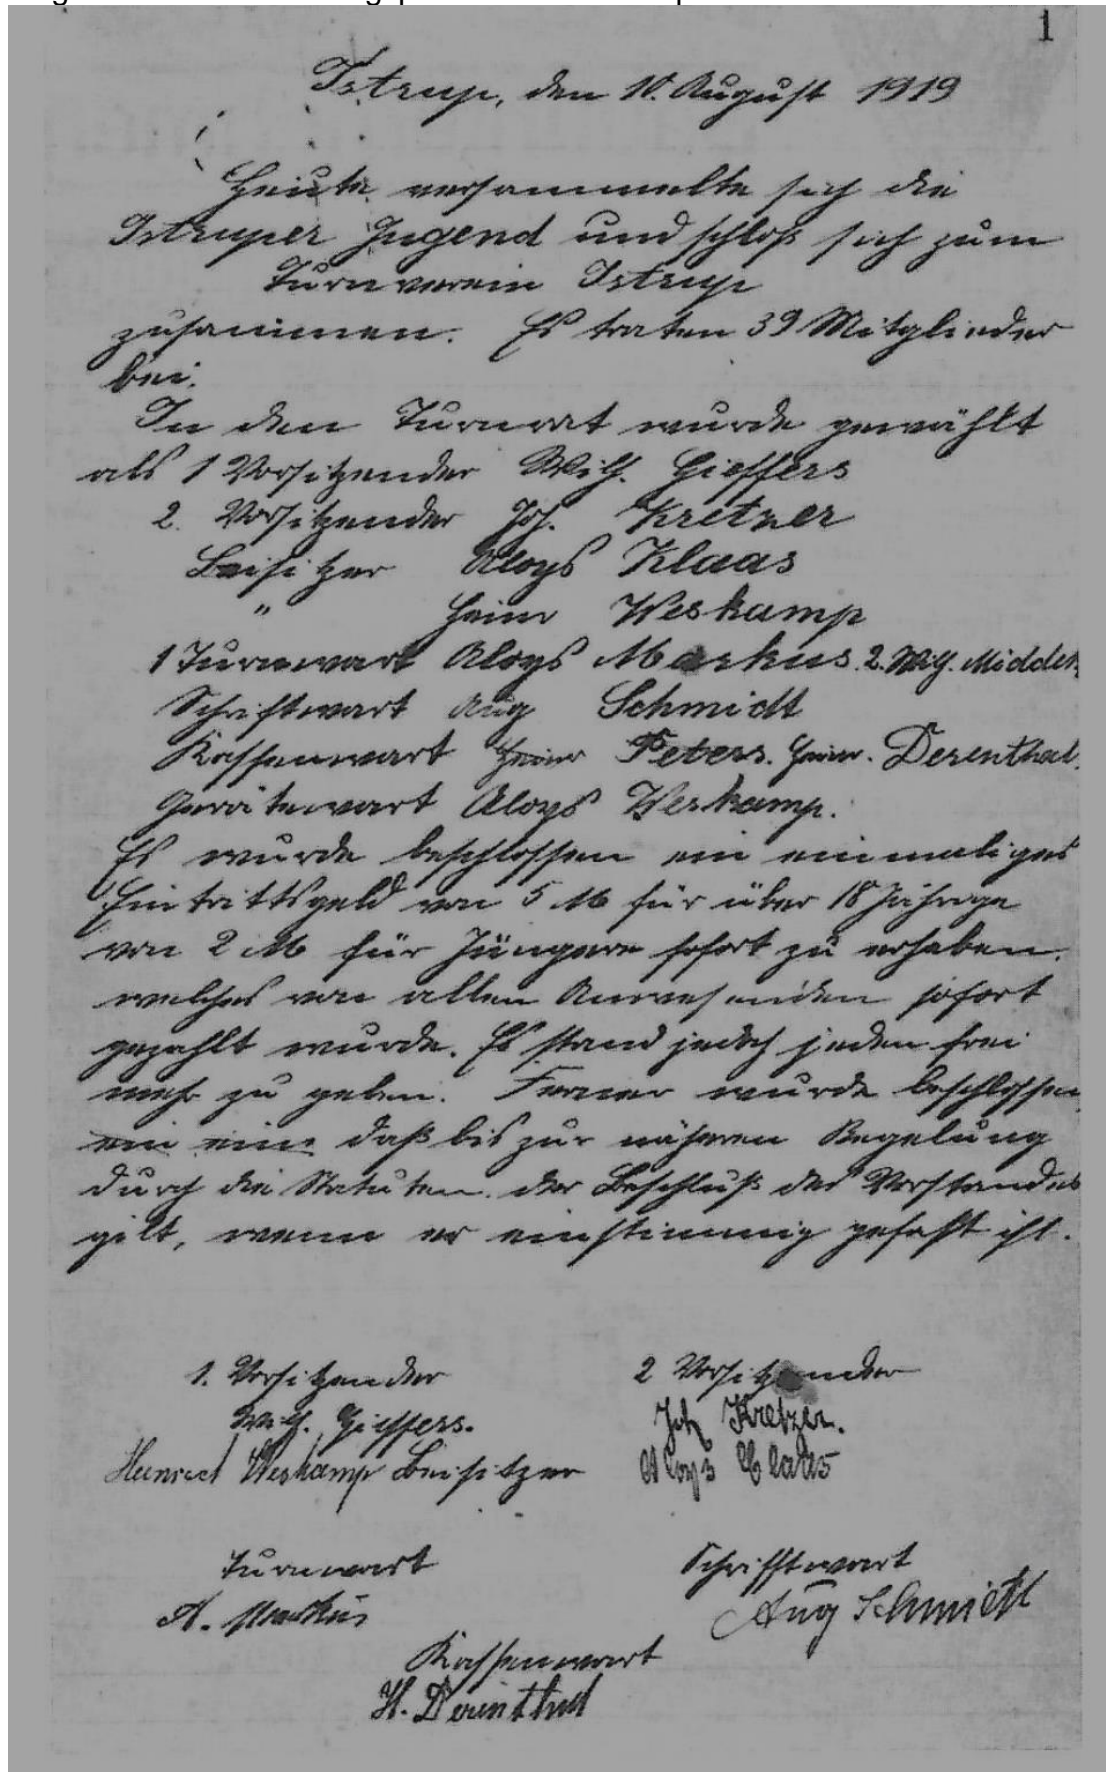 1
Istrup, den 10. August 1919
Heute versammelte sich die
Istruper Jugend und schloß sich zum
Turnverein Istrup
zusammen. Es traten 39 Mitglieder
bei.
In den Turnrat wurde gewählt
als 1 Vorsitzender Wilh. Gieffers
2. Vorsitzender Joh. Kretzer
Beisitzer Aloys Klaas
" Heinr Weskamp
1 Turnwart Aloys Markus. 2. Wilh. Midden
Schriftwart Aug Schmidt
Kassenwart Heinr Peters. Heinr. Derenthal.
Gerätewart Aloys Weskamp.
Es wurde beschlossen ein einmaliges
Eintrittsgeld von 5 M für über 18 Jährige
von 2 M für Jüngere sofort zu erheben.
welches von allen Anwesenden sofort
gezahlt wurde. Es stand jedoch jeden frei
mehr zu geben. Ferner wurde beschlossen
ein eine daß bis zur näheren Regelung
durch die Statuten der Beschluß des Vorstandes
gilt, wenn er einstimmig gefaßt ist.
1. Vorsitzender 2 Vorsitzender
Wilh. Gieffers. Joh Kretzer.
Heinrich Weskamp Beisitzer Aloys Claas
Turnwart Schrifftwart
A. Markus Aug Schmidt
Kassenwart
H. Derenthal